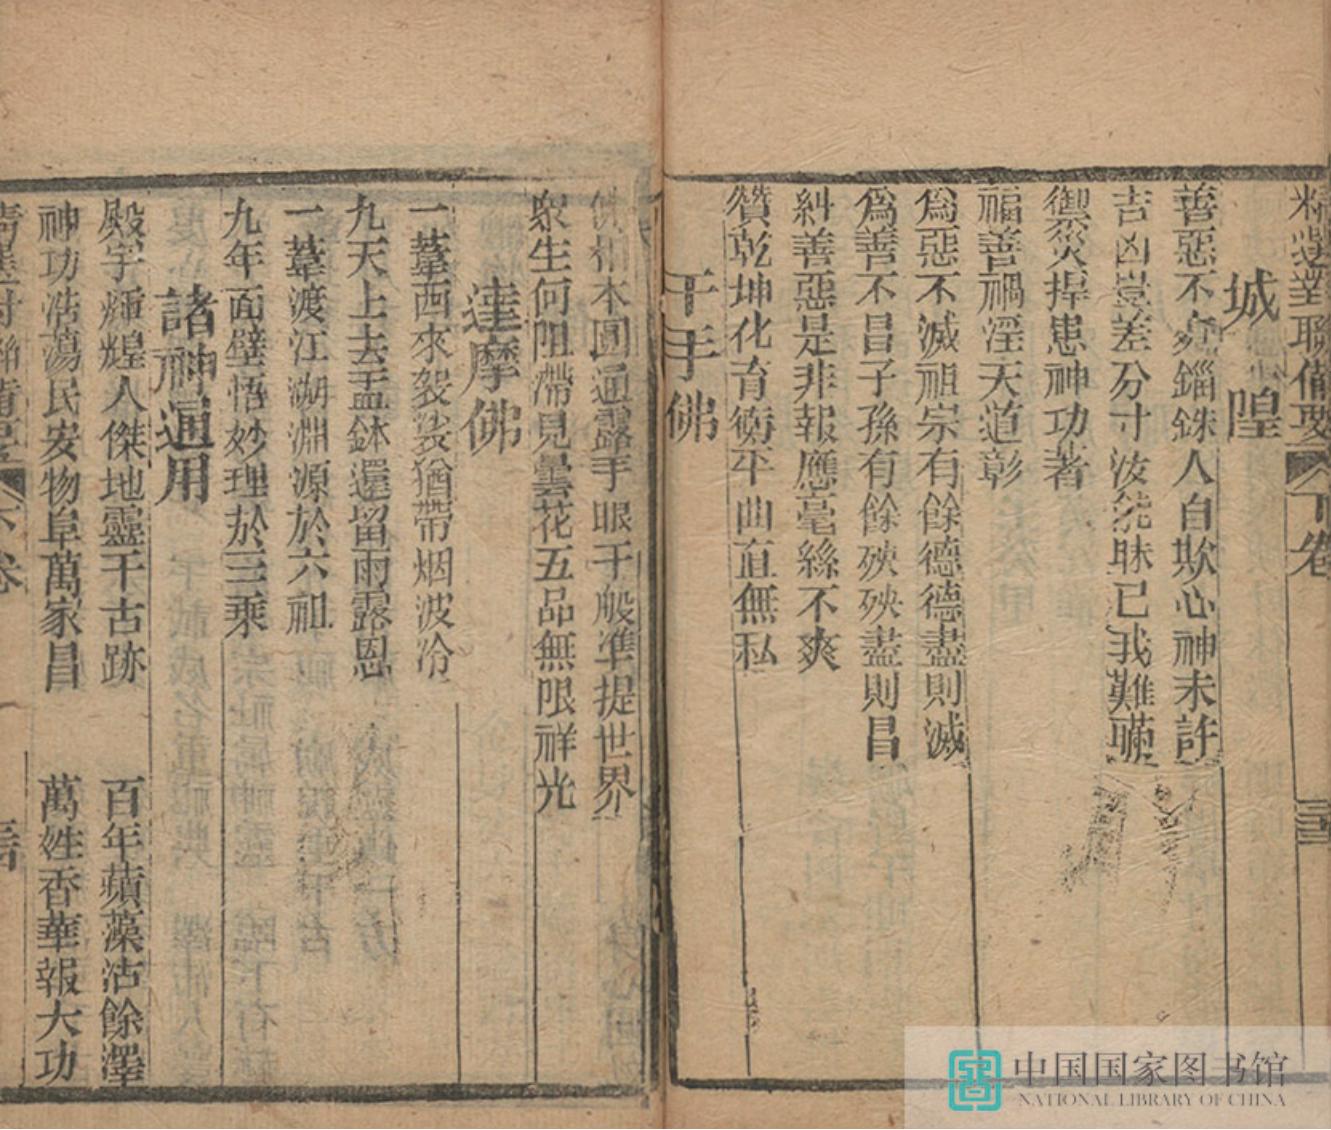 精選對聯備要 下卷
城隍
善惡不爽錙銖人自欺心神未許
吉凶豈差分寸汝能昧已我難瞞
禦災捍患神功著
福善禍淫天道彰
爲惡不滅祖宗有餘德德盡則滅
爲善不昌子孫有餘殃殃盡則昌
糾善惡是非報應毫絲不爽
贊乾坤化育衡平曲直無私
千手佛
相本圓通露手眼千般準提世界
衆生何阻滯見曇花五品無限祥光
達摩佛
一葦西來袈裟猶帶烟波冷
九天上去盂鉢還留雨露恩
一葦渡江溯淵源於六祖
九年面壁悟妙理於三乘
諸神通用
殿宇輝煌人傑地靈千古跡 百年蘋藻沾餘澤
神功浩蕩民安物阜萬家昌 萬姓香華報大功
下卷
中国国家图书馆
NATIONAL LIBRARY OF CHINA